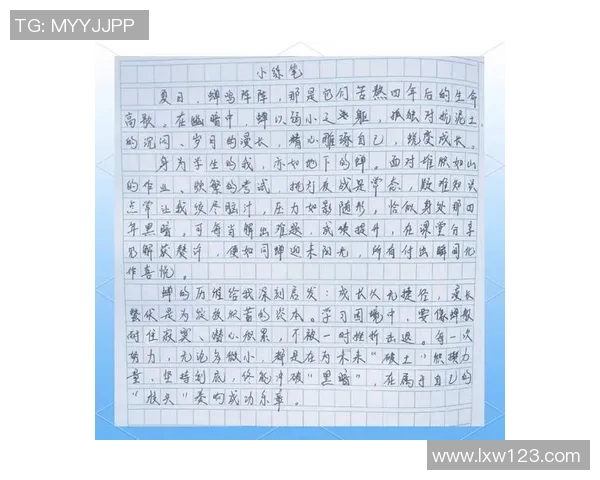 TG: MYYJJPP
小练笔
夏日，蝉鸣阵阵，那是它们苦熬四年后的生命
高歌。在幽暗中，蝉以弱小之躯，孤独对抗泥土
的沉闷、岁月的漫长，精心雕琢自己，蜕变成长。
身为学生的我，亦如地下的蝉。面对堆积如山
的作业、频繁的考试，挑灯夜战是常态，疑难知识
点常让我绞尽脑汁，压力如影随形，恰似身处那四
年黑暗。可每当解出难题，成绩提升，在课堂分享
见解获赞许，便如同蝉迎来阳光，所有付出瞬间化
作喜悦。
蝉的历程给我深刻启发：成长从无捷径，漫长
蛰伏是为绽放积蓄的资本。学习困境中，要像蝉般
耐住寂寞、潜心积累，不被一时挫折击退。每一次
努力，无论多微小，都是在为未来“破土”积攒力
量，坚持到底，终能冲破“黑暗”，在属于自己的
“枝头”奏响成功乐章。
www.lxw123.com